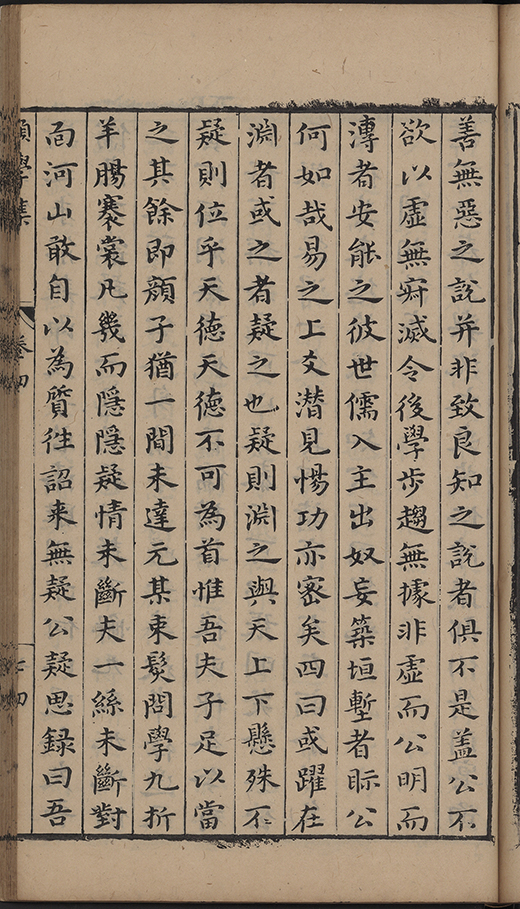 善無惡之說并非致良知之說者俱不是盖公不
欲以虛無寂滅令後學步趨無據非虛而公明而
溥者安能之彼世儒入主出奴妄築垣塹者眎公
何如哉易之上爻潜見惕功亦密矣四曰或躍在
淵者或之者疑之也疑則淵之與天上下懸殊不
疑則位乎天德天德不可為首惟吾夫子足以當
之其餘即顔子猶一間未達元某束髮問學九折
羊腸褰裳凡幾而隱隱疑情未斷夫一絲未斷對
面河山敢自以為質徃詔来無疑公疑思録曰吾
學集
卷四